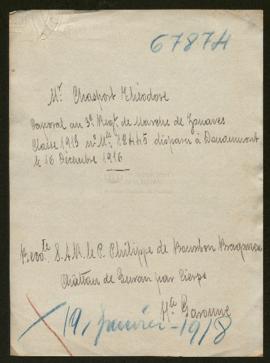 67874
Mr Chasport Théodore
Caporal au 3e Régt de Marche de Zouaves
Classe 1913 no Mle 18445 disparu à Douaumont
le 16 Décembre 1916
S.A.R. le P. Philippe de Bourbon Bragance
Château de par
Hte Garonne
19, Janvier - 1918